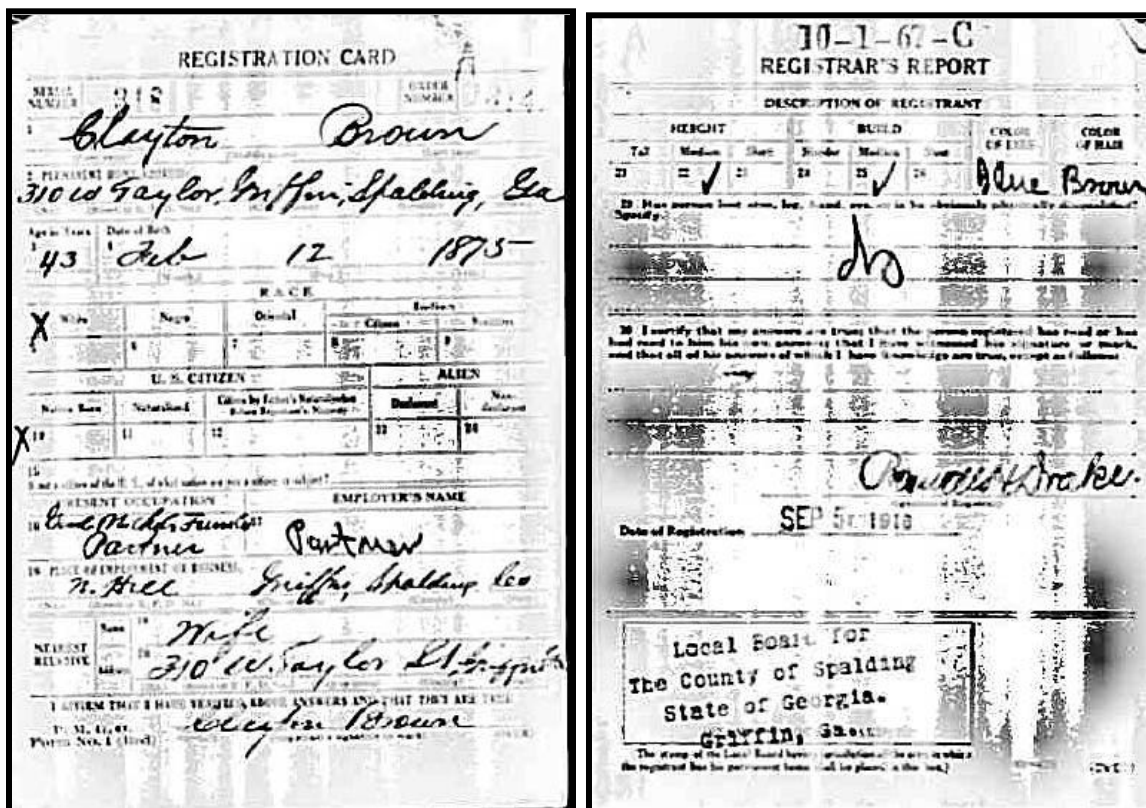 REGISTRATION CARD
SERIAL NUMBER 218
ORDER NUMBER
1 Clayton Brown
2 PERMANENT HOME ADDRESS
310 W Taylor, Griffin, Spalding, Ga
Age in Years Date of Birth
3 43 4 Feb 12 1875
RACE
White Negro Oriental Citizen
X 6 7 8 9
U. S. CITIZEN ALIEN
Native Born Naturalized Declarant Non-declarant
X 10 11 12 13 14
15
If not a citizen of the U. S., of what nation are you a citizen or subject?
PRESENT OCCUPATION EMPLOYER'S NAME
16 17
Partner Partner
18 PLACE OF EMPLOYMENT OR BUSINESS
N. Hill Griffin, Spalding
NEAREST RELATIVE Name 19 Wife
Address 20 310 W. Taylor St, Griffin
I AFFIRM THAT I HAVE VERIFIED ABOVE ANSWERS AND THAT THEY ARE TRUE
P. M. G. O.
Form No. 1 (Red) Clayton Brown
10-1-67-C
REGISTRAR'S REPORT
DESCRIPTION OF REGISTRANT
HEIGHT BUILD COLOR OF EYES COLOR OF HAIR
Tall Medium Short Slender Medium Stout
21 22 ✓ 23 24 25 ✓ 26 Blue Brown
29 Has person lost arm, leg, hand, eye, or is he obviously physically disqualified?
Specify.
No
30 I certify that my answers are true; that the person registered has read or has
had read to him his own answers; that I have witnessed his signature or mark,
and that all of his answers of which I have knowledge are true, except as follows:
Drake
Date of Registration SEP 5
Local Board for
The County of Spalding
State of Georgia.
Griffin, Ga.
(The stamp of the Local Board having jurisdiction of the area in which
the registrant has his permanent home shall be placed in this box.)